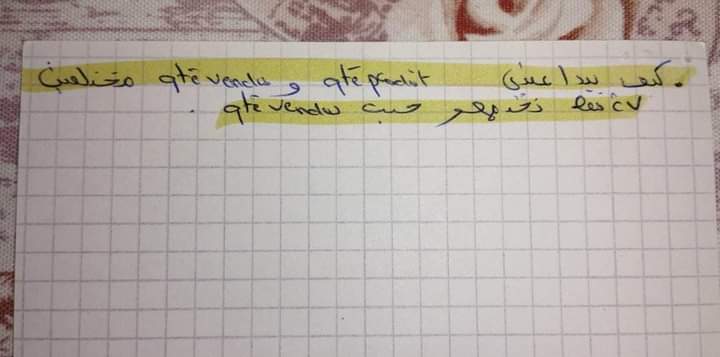 . كيف يبدا عندي qté produit و qté vendu مختلفين
CV فقط نخدمهو حسب qté vendu .